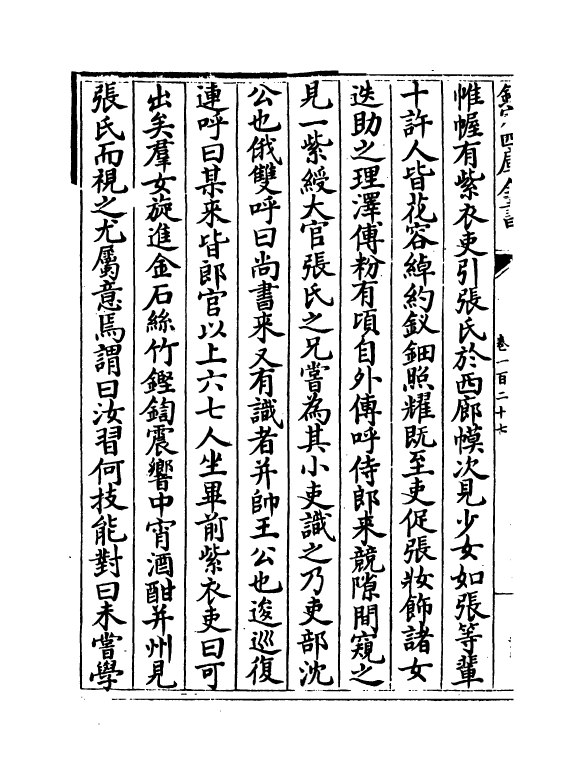 欽定四庫全書
卷一百二十七
帷幄有紫衣吏引張氏於西廊幙次見少女如張等輩
十許人皆花容綽約釵鈿照耀既至吏促張妝飾諸女
迭助之理澤傅粉有頃自外傳呼侍郎來競隙間窺之
見一紫綬大官張氏之兄嘗為其小吏識之乃吏部沈
公也俄雙呼曰尚書來又有識者并帥王公也逡巡復
連呼曰某來皆郎官以上六七人坐畢前紫衣吏曰可
出矣羣女旋進金石絲竹鏗鍧震響中宵酒酣并州見
張氏而視之尤屬意焉謂曰汝習何技能對曰未嘗學